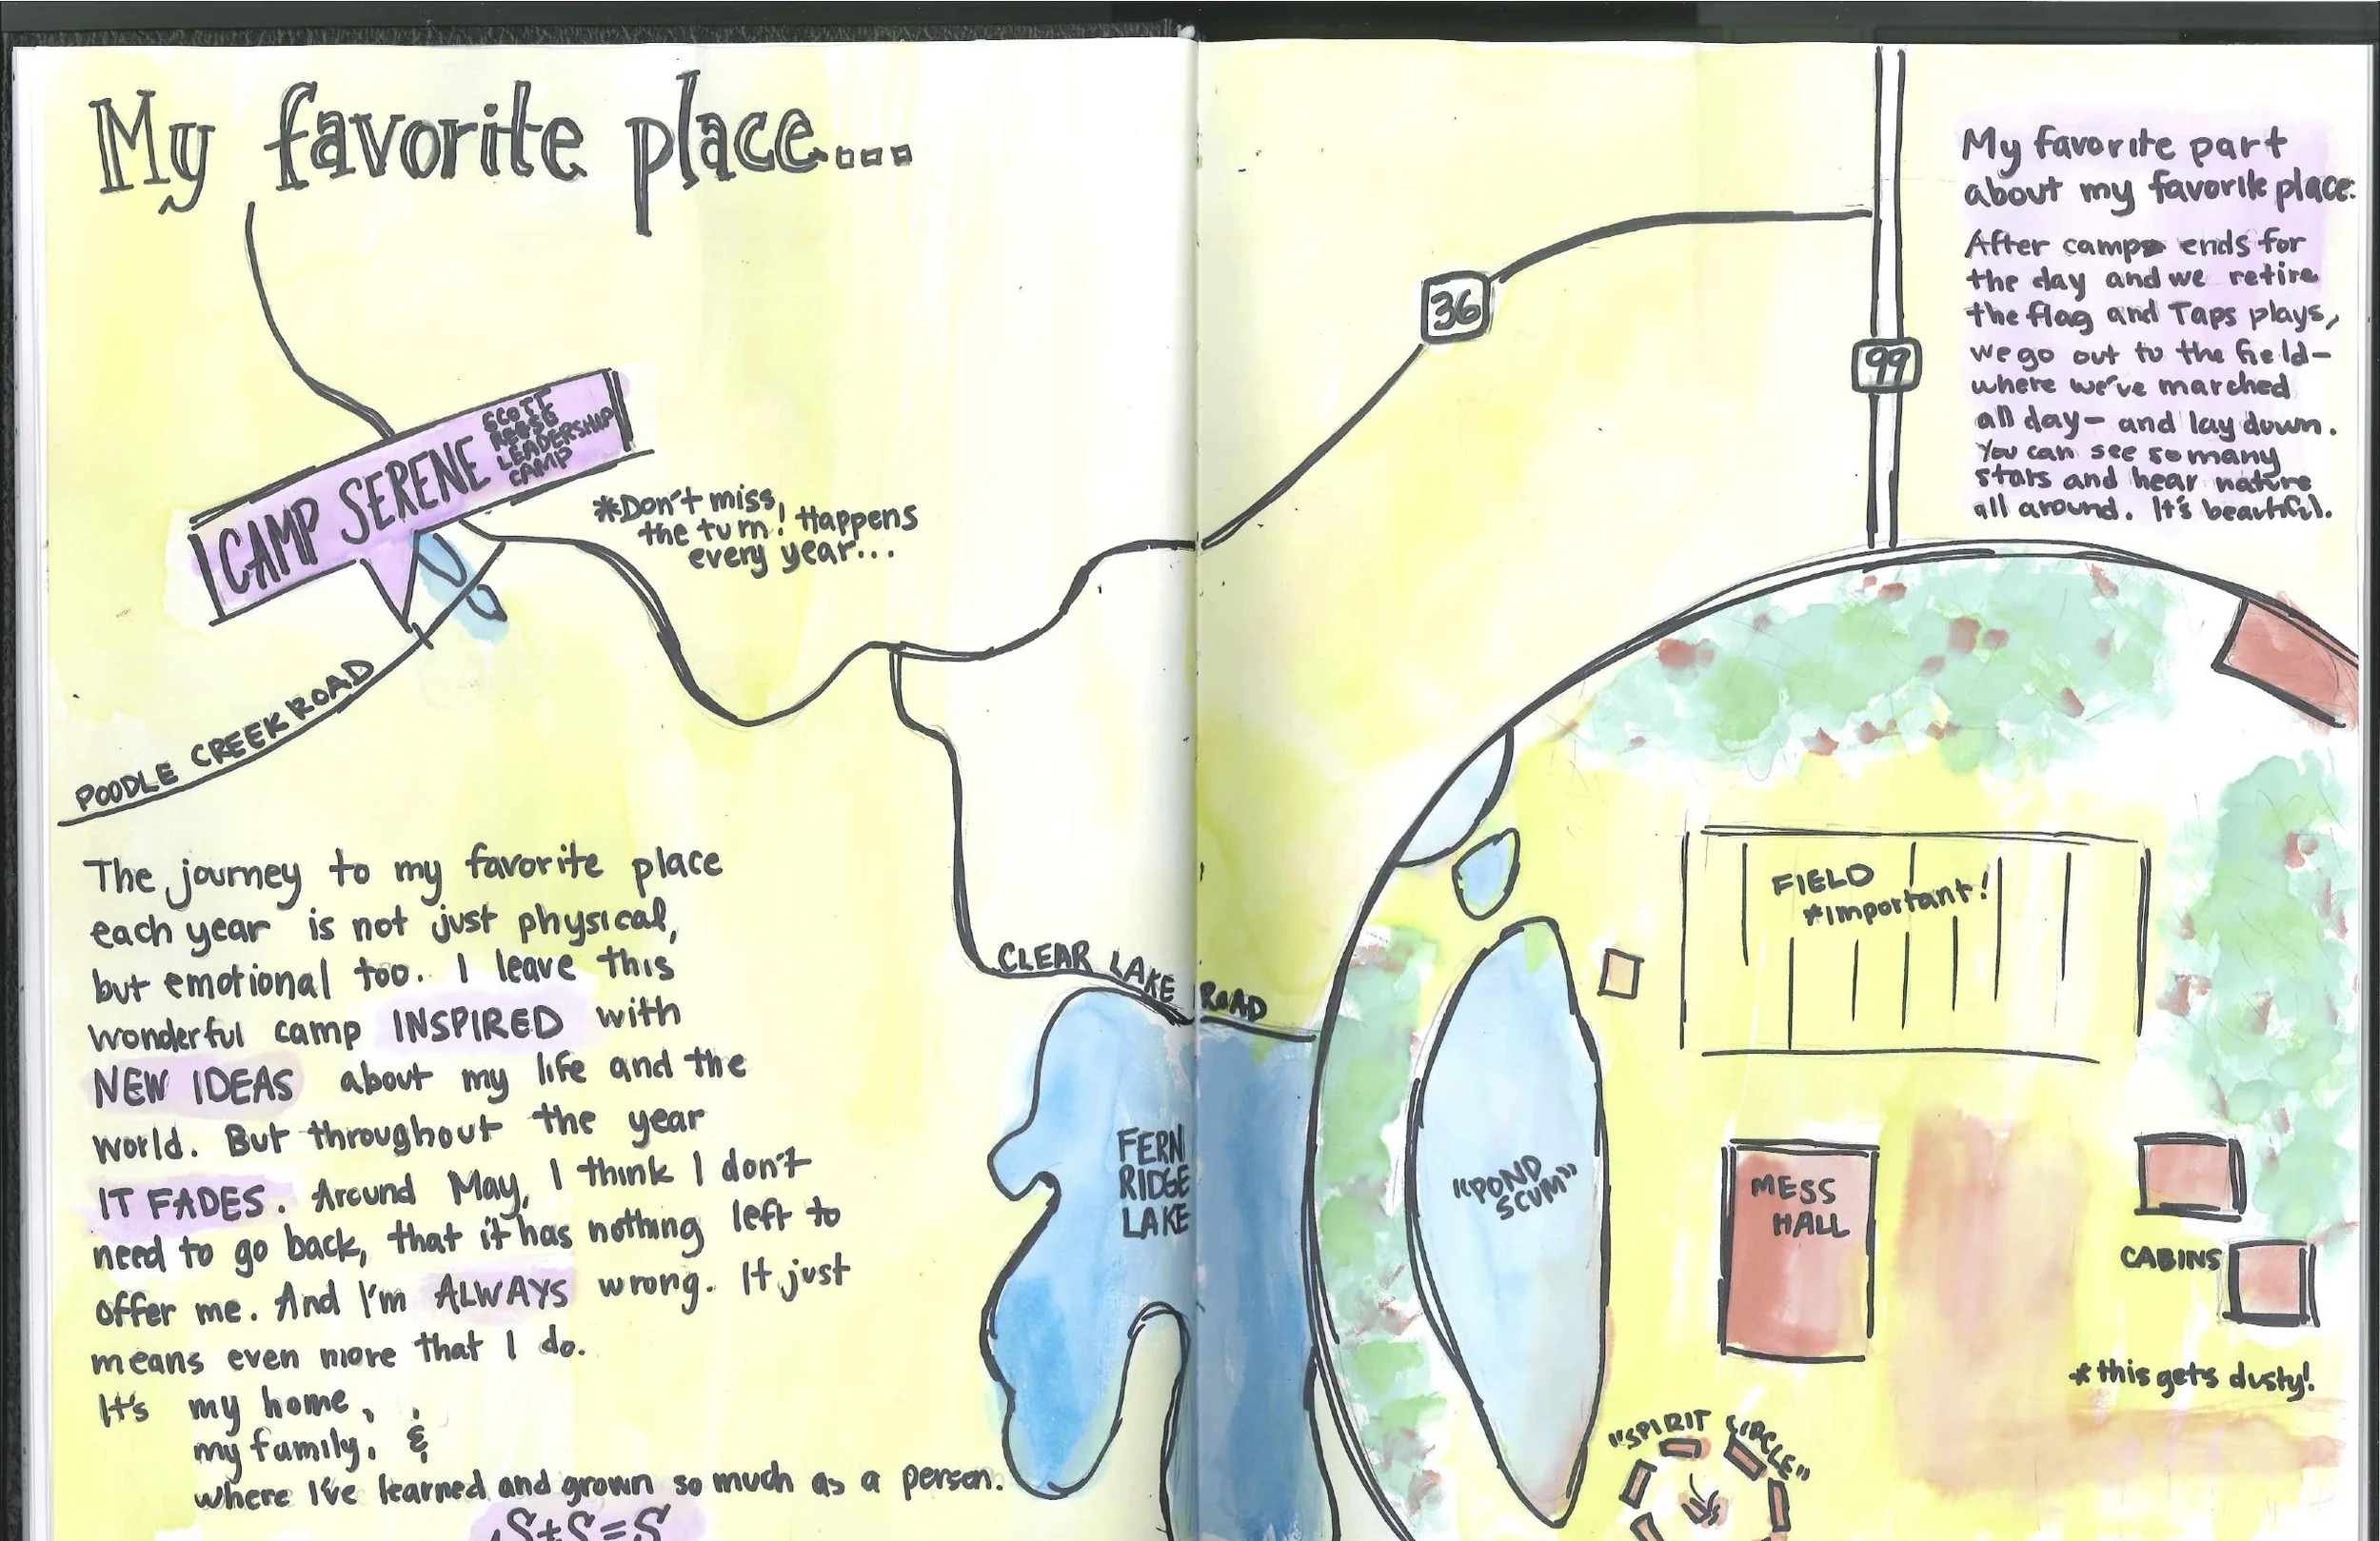 My favorite place...
CAMP SERENE
SCOTT
LEADERSHIP
CAMP
*Don't miss
the turn! Happens
every year...
POODLE CREEK ROAD
The journey to my favorite place
each year is not just physical,
but emotional too. I leave this
wonderful camp INSPIRED with
NEW IDEAS about my life and the
world. But throughout the year
IT FADES. Around May, I think I don't
need to go back, that it has nothing left to
offer me. And I'm ALWAYS wrong. It just
means even more that I do.
It's my home,
my family, &
where I've learned and grown so much as a person.
S+S=S
CLEAR LAKE ROAD
FERN
RIDGE
LAKE
36
99
My favorite part
about my favorite place:
After camp ends for
the day and we retire
the flag and Taps plays,
we go out to the field-
where we've marched
all day- and lay down.
You can see so many
stars and hear nature
all around. It's beautiful.
FIELD
*important!
"POND
SCUM"
MESS
HALL
CABINS
*this gets dusty!
"SPIRIT CIRCLE"